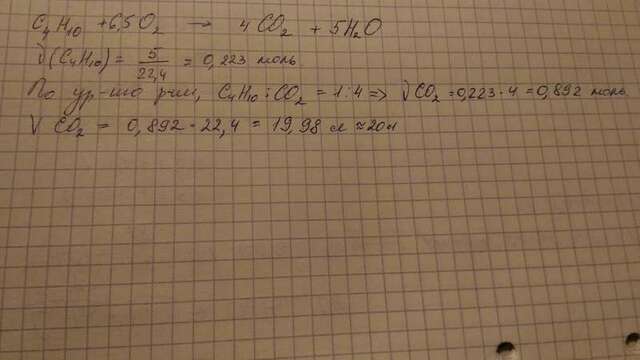 C₄H₁₀ + 6,5O₂ → 4CO₂ + 5H₂O
ν(C₄H₁₀) = 5/22,4 = 0,223 моль
По ур-ию р-ии, C₄H₁₀ : CO₂ = 1:4 => ν CO₂ = 0,223 · 4 = 0,892 моль
V CO₂ = 0,892 · 22,4 = 19,98 л ≈ 20л